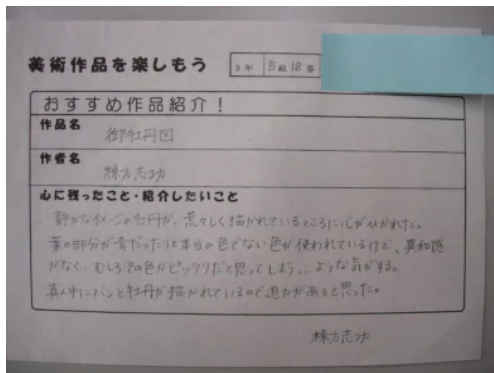 美術作品を楽しもう
3年 B組 18番
おすすめ作品紹介！
作品名
御牡丹図
作者名
棟方志功
心に残ったこと・紹介したいこと
静かなイメージの牡丹が、荒々しく描かれているところに心がひかれた。
葉の部分が青だったりと本当の色でない色が使われているけど、異和感
がなく、むしろその色がピッタリだと思ってしまう…ような気がする。
真ん中にバンと牡丹が描かれているので迫力があると思った。
棟方志功